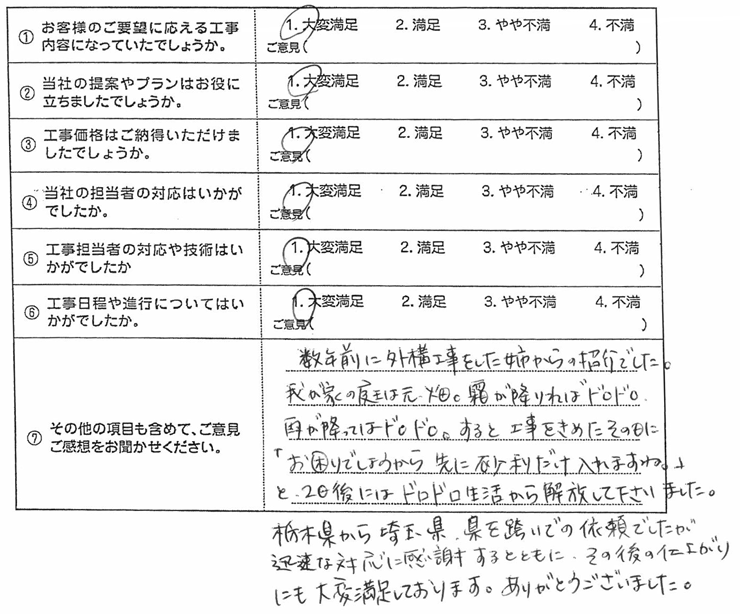 ① お客様のご要望に応える工事内容になっていたでしょうか。 1. 大変満足 2. 満足 3. やや不満 4. 不満
ご意見( )
② 当社の提案やプランはお役に立ちましたでしょうか。 1. 大変満足 2. 満足 3. やや不満 4. 不満
ご意見( )
③ 工事価格はご納得いただけましたでしょうか。 1. 大変満足 2. 満足 3. やや不満 4. 不満
ご意見( )
④ 当社の担当者の対応はいかがでしたか。 1. 大変満足 2. 満足 3. やや不満 4. 不満
ご意見( )
⑤ 工事担当者の対応や技術はいかがでしたか 1. 大変満足 2. 満足 3. やや不満 4. 不満
ご意見( )
⑥ 工事日程や進行についてはいかがでしたか。 1. 大変満足 2. 満足 3. やや不満 4. 不満
ご意見( )
⑦ その他の項目も含めて、ご意見
ご感想をお聞かせください。
数年前に外構工事をした姉からの紹介でした。
我が家の庭は元畑。霜が降りればドロドロ
雨が降ってはドロドロ。すると工事をきめたその日に
「お困りでしょうから先に砂利だけ入れますね。」
と、2日後にはドロドロ生活から解放して下さいました。
栃木県から埼玉県、県を跨いでの依頼でしたが
迅速な対応に感謝するとともに、その後の仕上がり
にも大変満足しております。ありがとうございました。